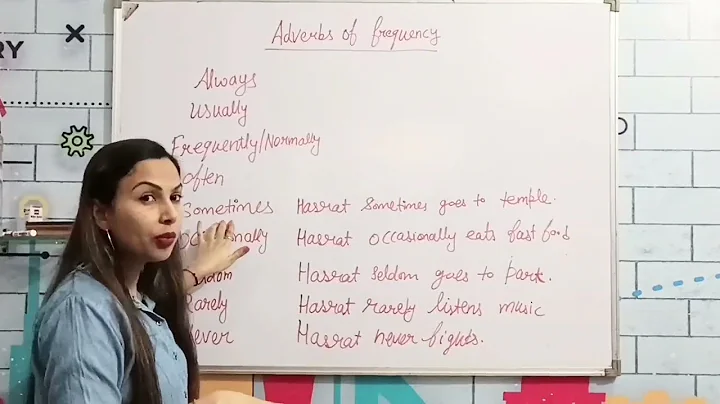 Adverbs of frequency
RY
Always
Usually
Frequently/Normally
Often
Sometimes Hasrat Sometimes goes to temple.
Occasionally Hasrat occasionally eats fast food
Hasrat Seldom goes to park.
Rarely Hasrat rarely listens music
Never Hasrat never fights.